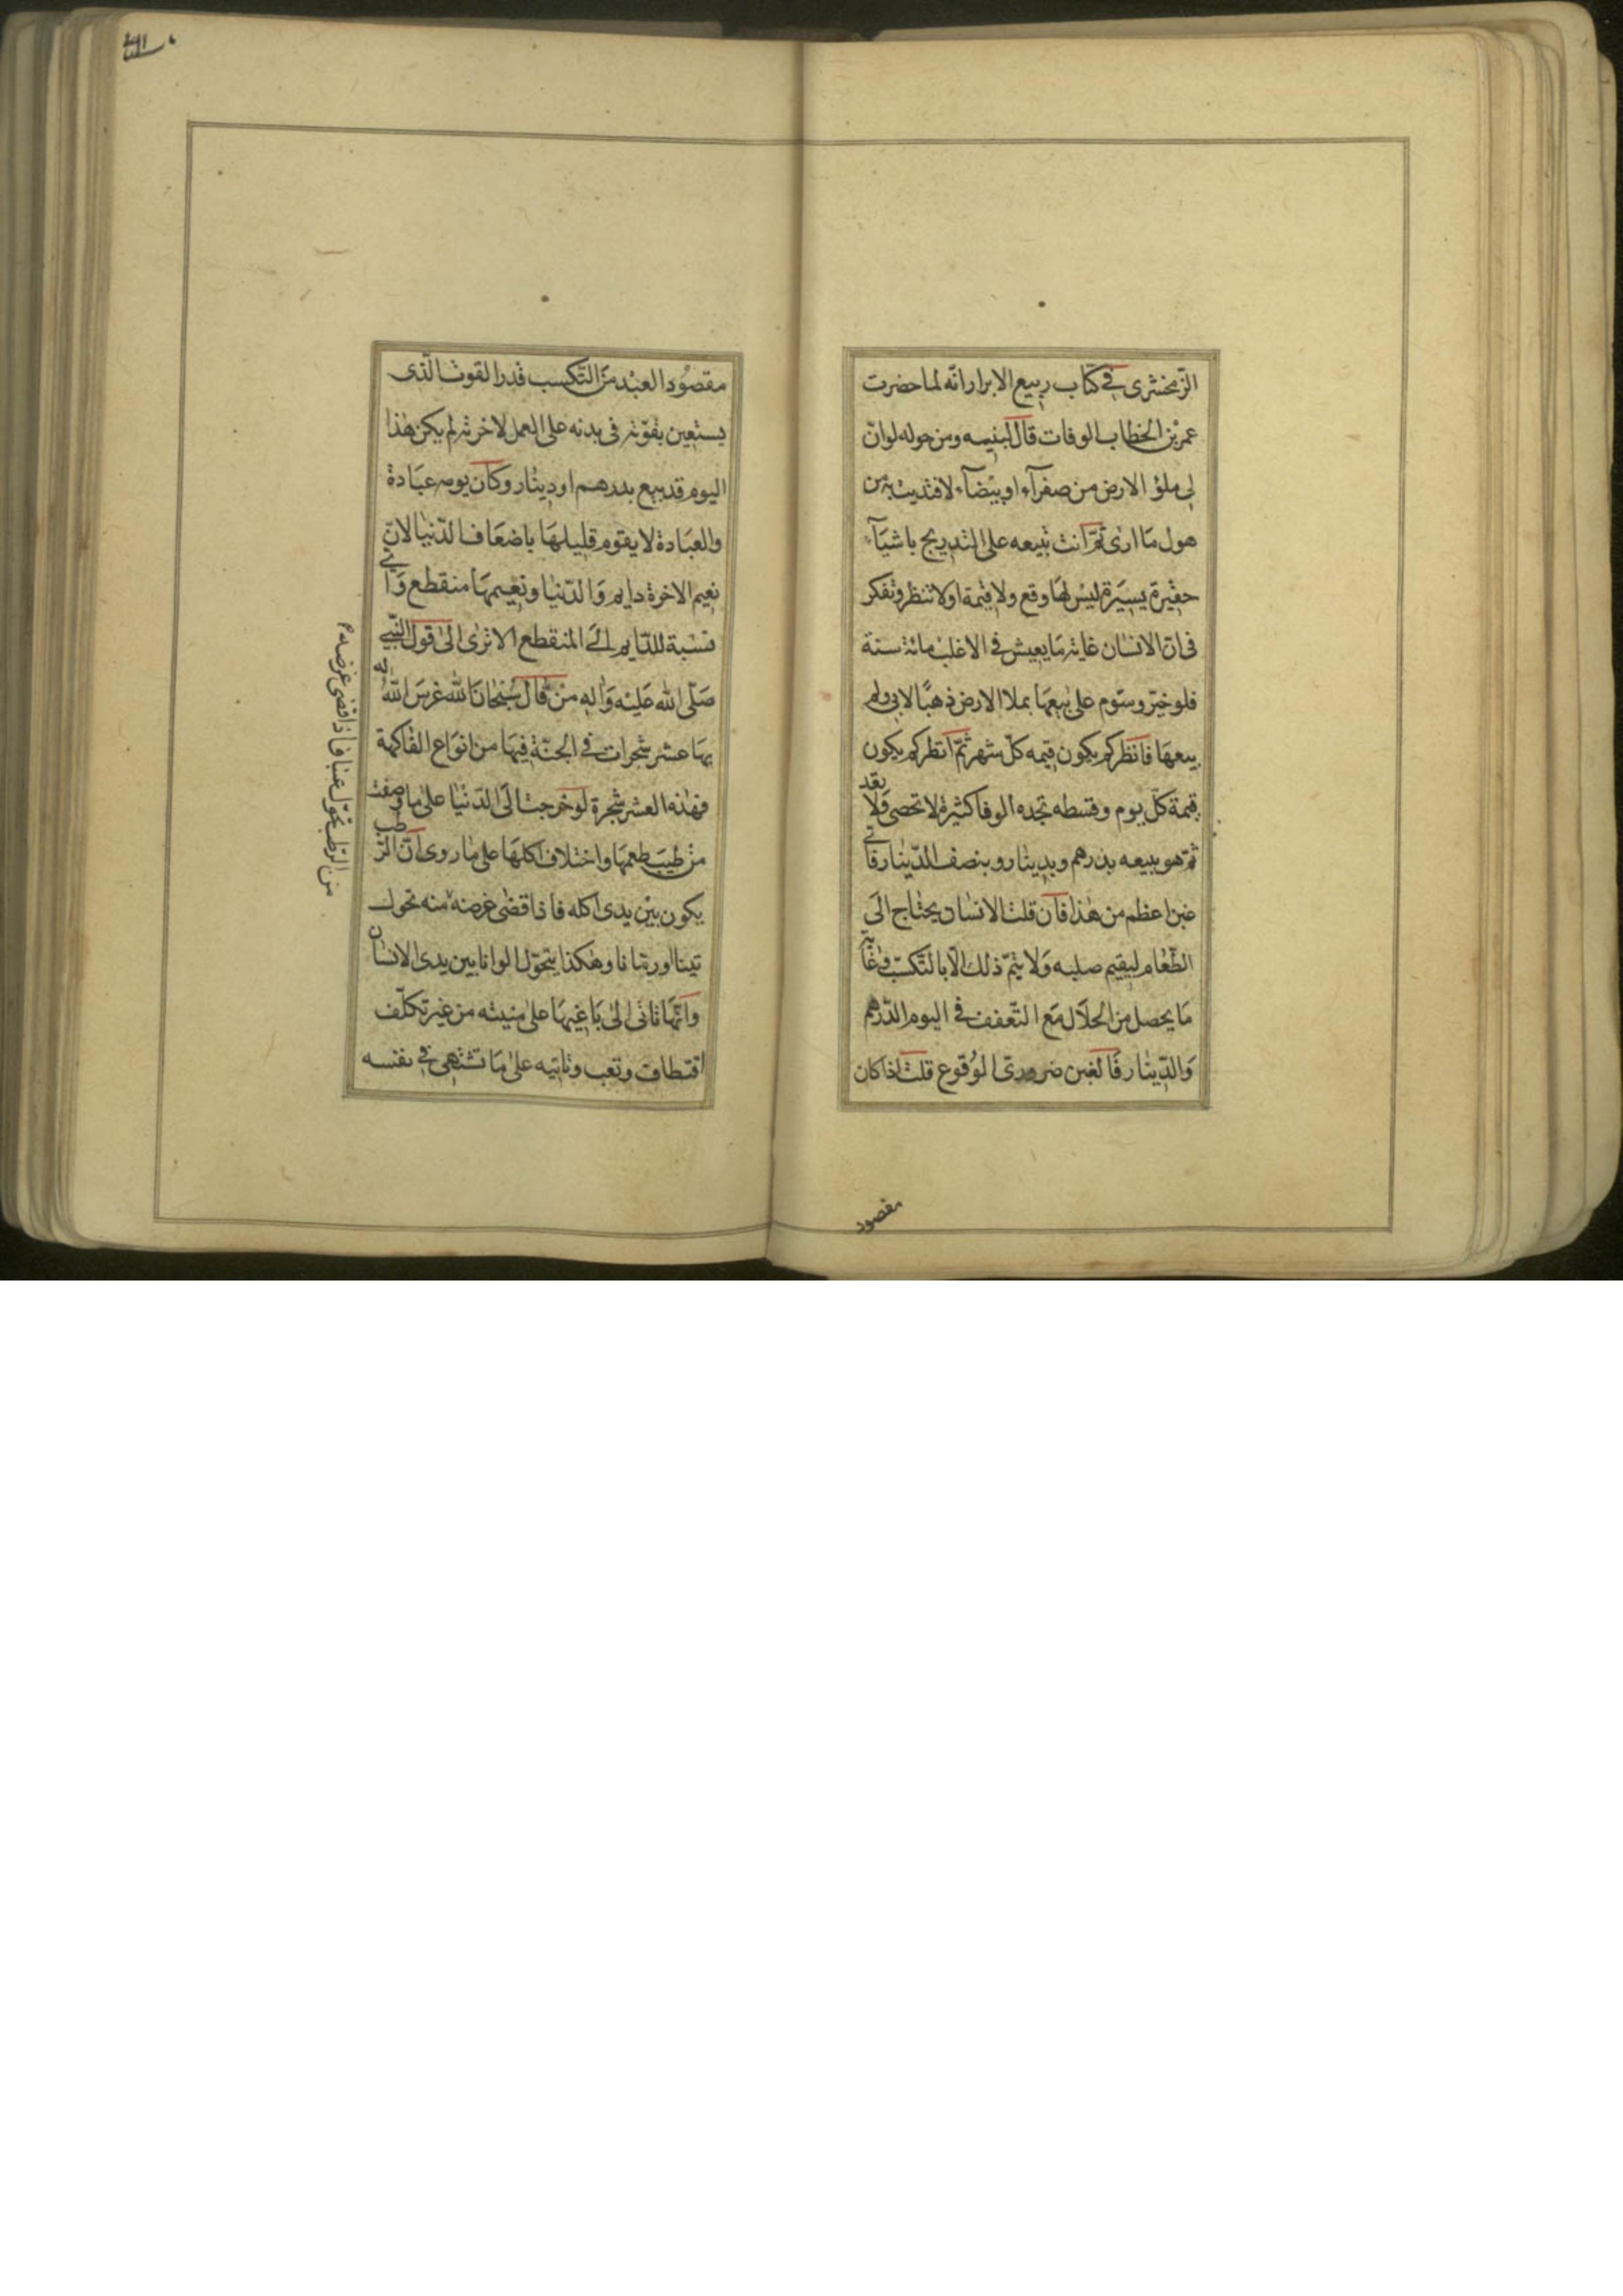 الزمخشرى فى كتاب ربيع الابرار انه لما حضرت
عمر بن الخطاب الوفات قال لبنيه ومن حوله لو انّ
لى ملؤ الارض من صفرآء او بيضآء لافتديت به من
هول ما ارى ثمّ انت تبيعه على التدريج باشيآء
حقيرة يسيرة ليس لها وقع ولا قيمة او لا تنظر وتفكر
فى انّ الانسان غاية ما يعيش فى الاغلب مائة سنة
فلو خيّر وسوّم على بيعها بملا الارض ذهبًا لابى ولم
يبعها فانظر كم يكون قيمه كلّ شهر ثمّ انظر كم يكون
قيمة كلّ يوم وقسطه تجده الوفا كثيرة لا تحصى ولا تعد
ثمّ هو يبيعه بدرهم وبدينار وبنصف الدّينار فاىّ
غبن اعظم من هذا فان قلت الانسان يحتاج الى
الطّعام ليقيم صلبه ولا يتمّ ذلك الّا بالتّكسّب وغاية
ما يحصل من الحلال مع التّعفف فى اليوم الدّرهم
والدّينار فالغبن ضرورىّ الوُقوع قلت اذا كان
مقصود
مقصُود العبْد من التّكسب قدر القوت الّذى
يستعين بقوّته فى بدنه على العمل لاخرته لم يكن هذا
اليوم قد بيع بدرهم او دينار وكان يومه عبادة
والعبَادة لا يقوم قليلها باضعاف الدّنيا لانّ
نعيم الاخرة دايم والدّنيا ونعيمها منقطع واىّ
نسْبة للدّايم الى المنقطع الا ترى الى قول النّبى
صلّى الله عليْه واله من قال سُبْحان الله غرس الله له
بها عشر شجرات فى الجنّة فيها من انواع الفاكهة
فهذه العشر شجرة لو خرجت الى الدّنيا على ما وصفت
من طيب طعمها واختلاف اكلها على ما روى انّ الرّطب
يكون بين يدى اكله فاذا قضى غرضه منه تحول
تينا او رمّانا وهكذا يتحوّل الوانا بين يدى الانسان
وانّها تاتى الى باغيها على منيته من غير تكلّف
اقتطاف وتعب وتاتيه على ما تشتهى فى نفسه
من الرّطب تحوّل عنبا فاذا قضى غرضه م